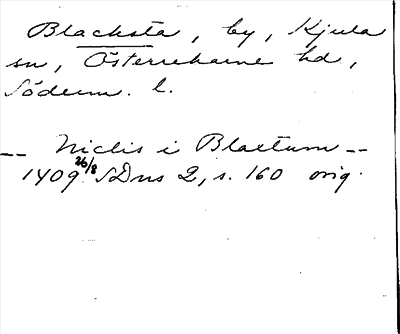 Blacksta, by, Kjula
sn, Österrekarne hd,
Söderm. l.
-- Niclis i Blactum --
1409 26/8 SDns 2, s. 160 orig.